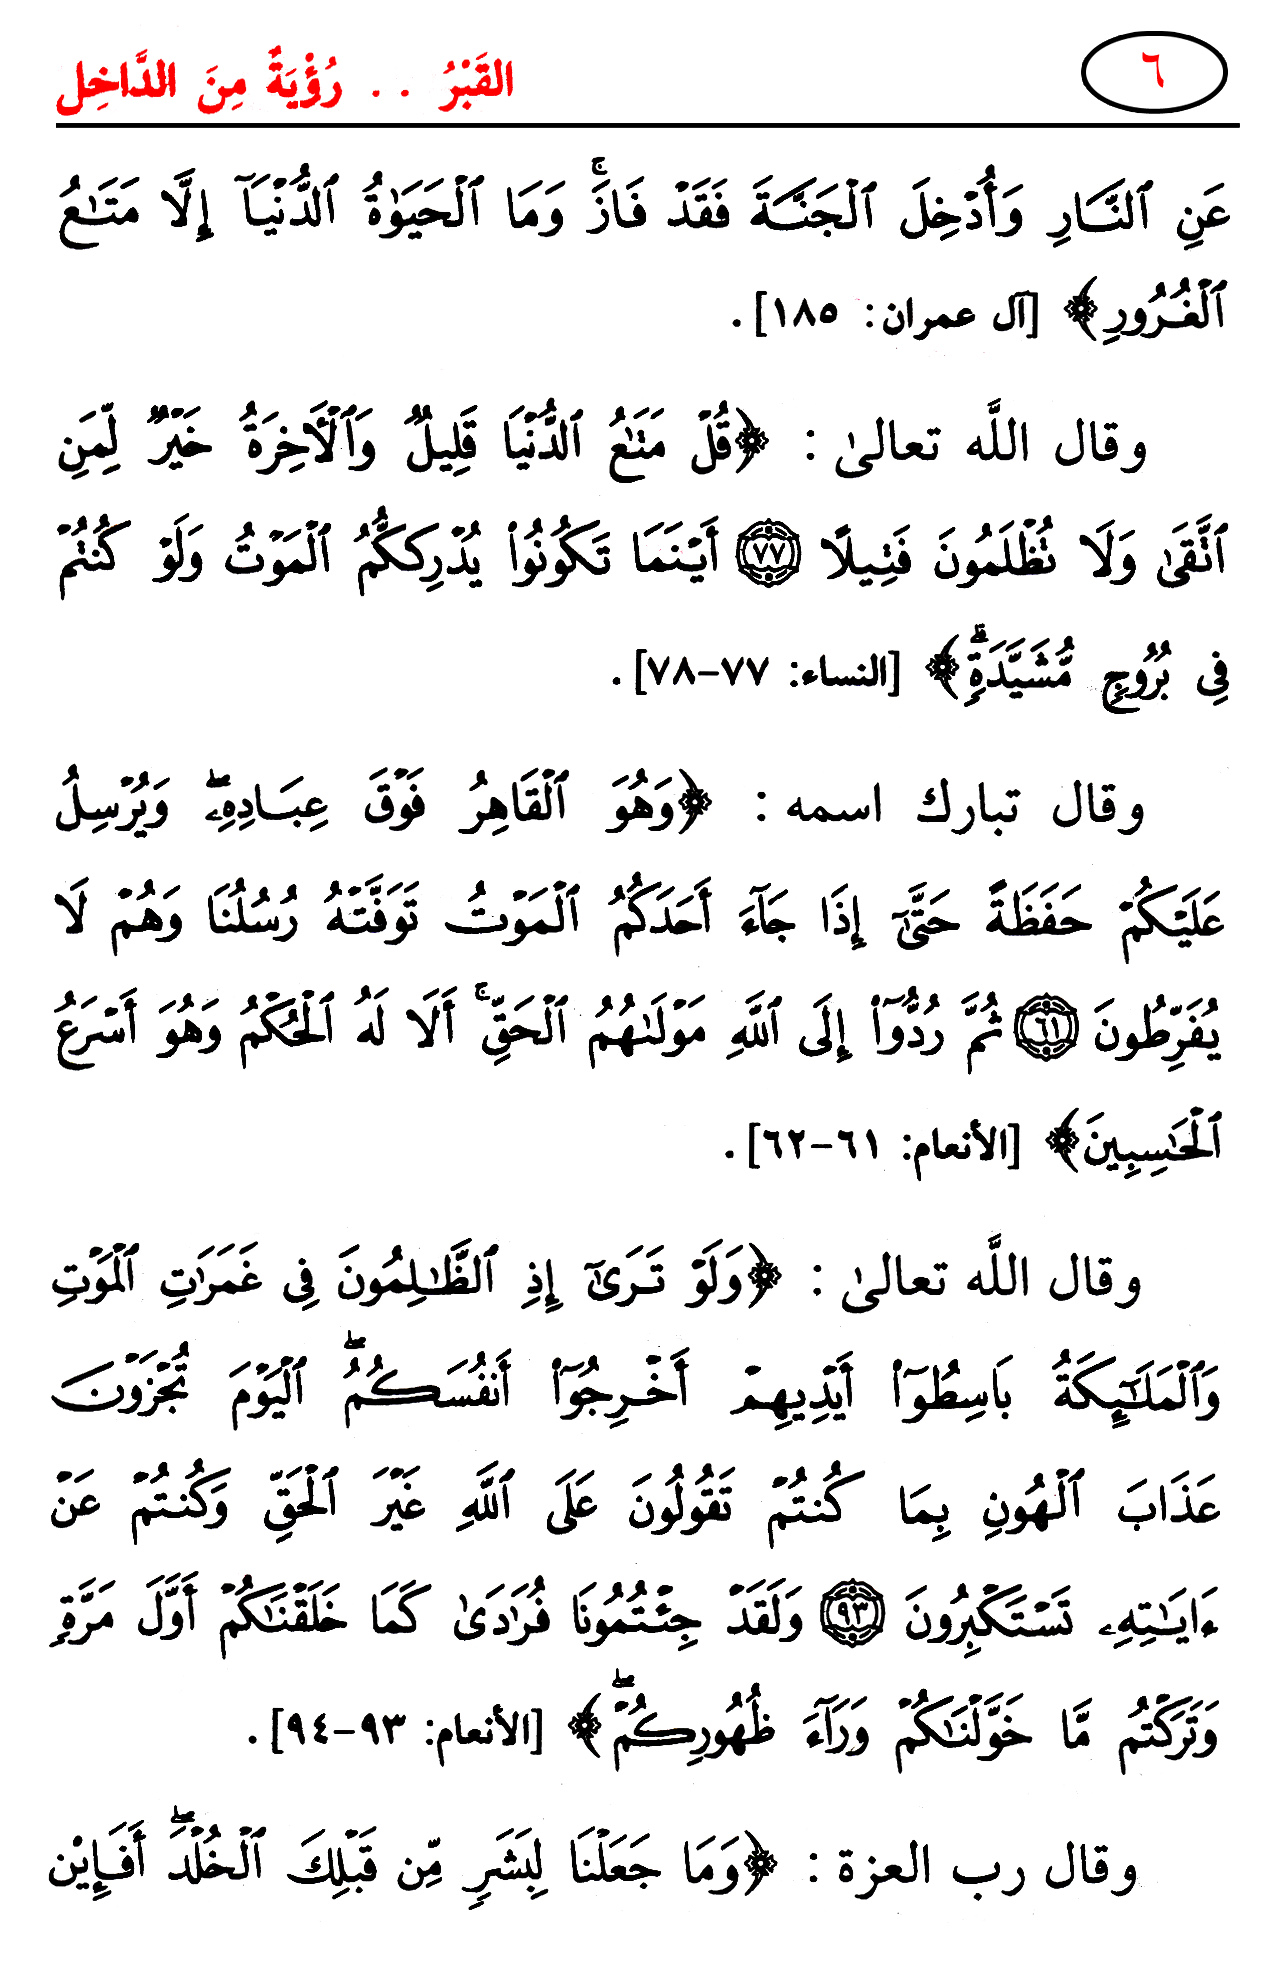 ٦
القَبْرُ .. رُؤْيَةٌ مِنَ الدَّاخِل
عَنِ ٱلنَّارِ وَأُدْخِلَ ٱلْجَنَّةَ فَقَدْ فَازَۗ وَمَا ٱلْحَيَوٰةُ ٱلدُّنْيَآ إِلَّا مَتَٰعُ
ٱلْغُرُورِ﴾ [آل عمران: ١٨٥].
وقال اللَّه تعالىٰ: ﴿قُلْ مَتَٰعُ ٱلدُّنْيَا قَلِيلٌ وَٱلْأَخِرَةُ خَيْرٌ لِّمَنِ
ٱتَّقَىٰ وَلَا تُظْلَمُونَ فَتِيلًا ٧٧ أَيْنَمَا تَكُونُوا۟ يُدْرِككُّمُ ٱلْمَوْتُ وَلَوْ كُنتُمْ
فِي بُرُوجٍ مُّشَيَّدَةٍۗ﴾ [النساء: ٧٧-٧٨].
وقال تبارك اسمه: ﴿وَهُوَ ٱلْقَاهِرُ فَوْقَ عِبَادِهِۦۖ وَيُرْسِلُ
عَلَيْكُمْ حَفَظَةً حَتَّىٰٓ إِذَا جَآءَ أَحَدَكُمُ ٱلْمَوْتُ تَوَفَّتْهُ رُسُلُنَا وَهُمْ لَا
يُفَرِّطُونَ ٦١ ثُمَّ رُدُّوٓا۟ إِلَى ٱللَّهِ مَوْلَىٰهُمُ ٱلْحَقِّۚ أَلَا لَهُ ٱلْحُكْمُ وَهُوَ أَسْرَعُ
ٱلْحَٰسِبِينَ﴾ [الأنعام: ٦١-٦٢].
وقال اللَّه تعالىٰ: ﴿وَلَوْ تَرَىٰٓ إِذِ ٱلظَّٰلِمُونَ فِي غَمَرَٰتِ ٱلْمَوْتِ
وَٱلْمَلَٰٓئِكَةُ بَاسِطُوٓا۟ أَيْدِيهِمْ أَخْرِجُوٓا۟ أَنفُسَكُمُۖ ٱلْيَوْمَ تُجْزَوْنَ
عَذَابَ ٱلْهُونِ بِمَا كُنتُمْ تَقُولُونَ عَلَى ٱللَّهِ غَيْرَ ٱلْحَقِّ وَكُنتُمْ عَنْ
ءَايَٰتِهِۦ تَسْتَكْبِرُونَ ٩٣ وَلَقَدْ جِئْتُمُونَا فُرَٰدَىٰ كَمَا خَلَقْنَٰكُمْ أَوَّلَ مَرَّةٍ
وَتَرَكْتُم مَّا خَوَّلْنَٰكُمْ وَرَآءَ ظُهُورِكُمْۖ﴾ [الأنعام: ٩٣-٩٤].
وقال رب العزة: ﴿وَمَا جَعَلْنَا لِبَشَرٍ مِّن قَبْلِكَ ٱلْخُلْدَۖ أَفَإِيْن